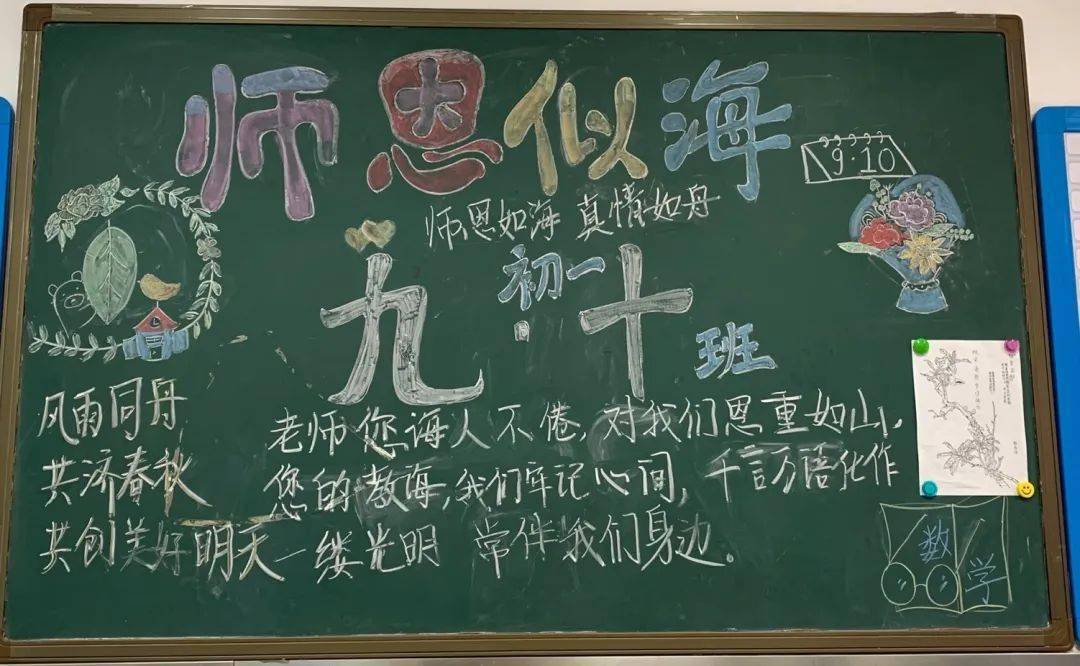 师恩似海
9·10
师恩如海 真情如舟
九·十
初一 班
风雨同舟
共济春秋
共创美好明天
老师您诲人不倦,对我们恩重如山,
您的教海,我们牢记心间,千言万语化作
一缕光明 常伴我们身边。
数学